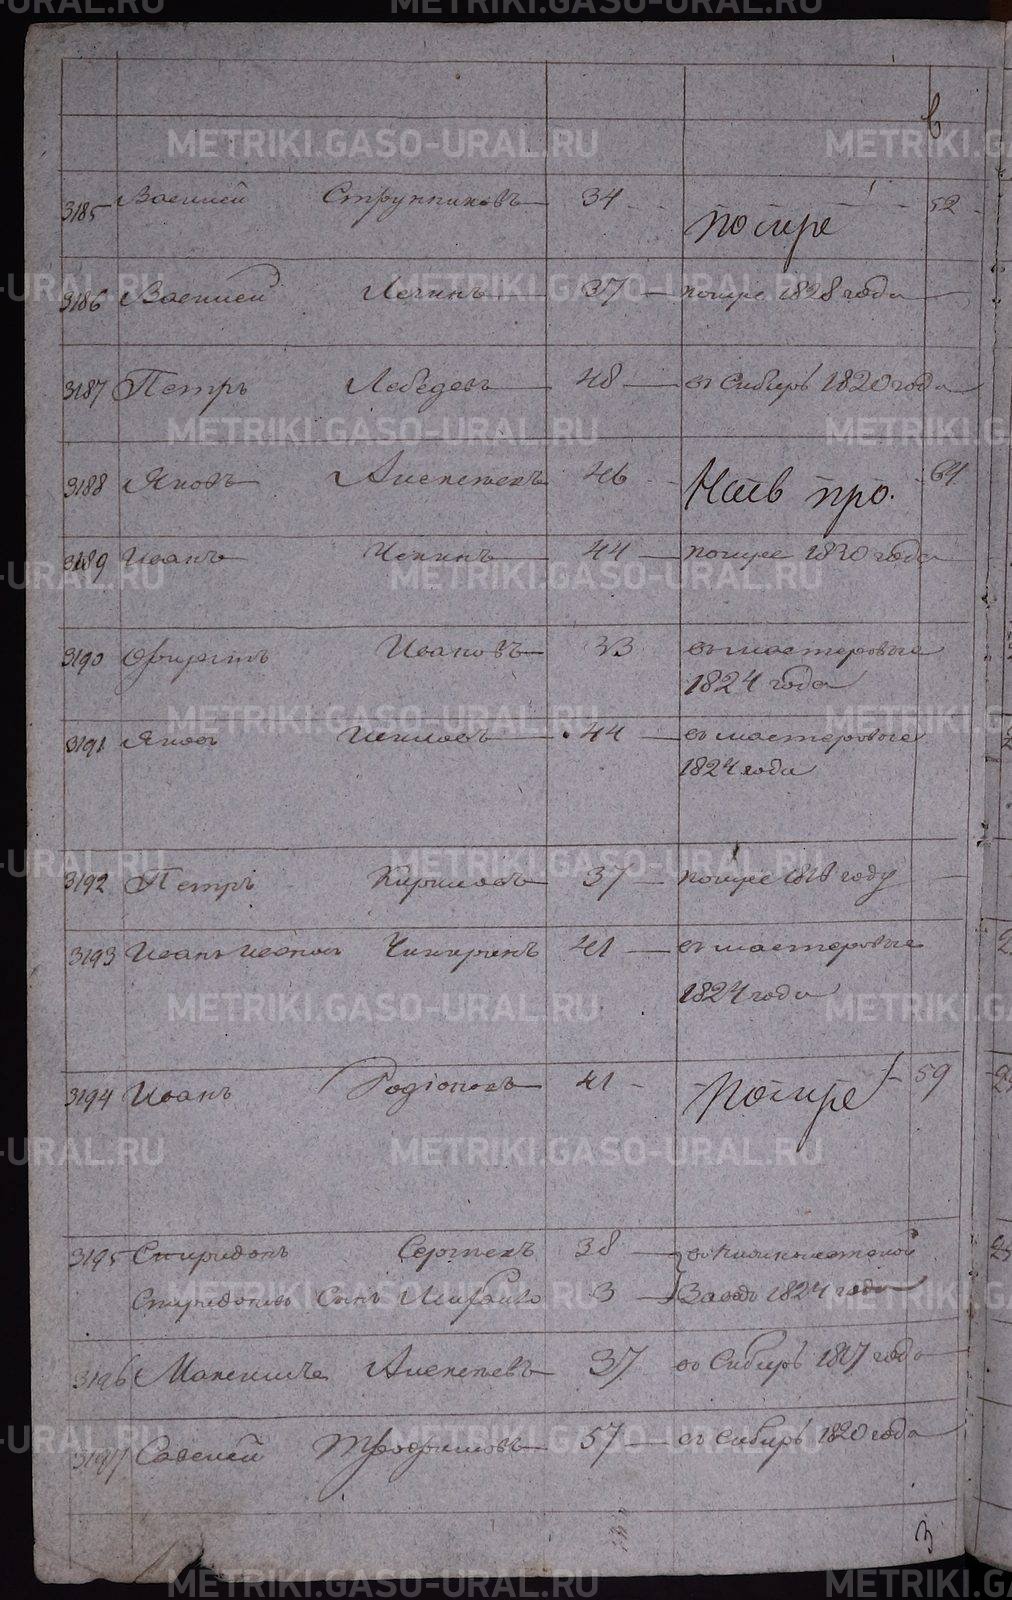 в
3185 Василей Струнниковъ 34 помре 52
3186 Василей Лечинъ 37 помре 1828 года
3187 Петръ Лебедевъ 48 въ Сибирь 1820 года
3188 Яковъ Алексеевъ 46 про. 64
3189 Иванъ 44 помре 1830 года
3190 Ивановъ 33 въ мастеровые
1824 года
3191 Яковъ 44 въ мастеровые
1824 года
3192 Петръ Кириловъ 37 помре 1818 году
3193 Иванъ Чикиринъ 41 въ мастеровые
1824 года
3194 Иванъ Родіоновъ 41 Помре 59
3195 Спиридонъ Сергеевъ 38
Спиридоновъ сынъ 3 Заводъ 1824 года
3196 Максимъ Алексеевъ 37 во Сибирь 1817 года
3197 Савелей Трофимовъ 57 въ Сибирь 1820 года
3
METRIKI.GASO-URAL.RU